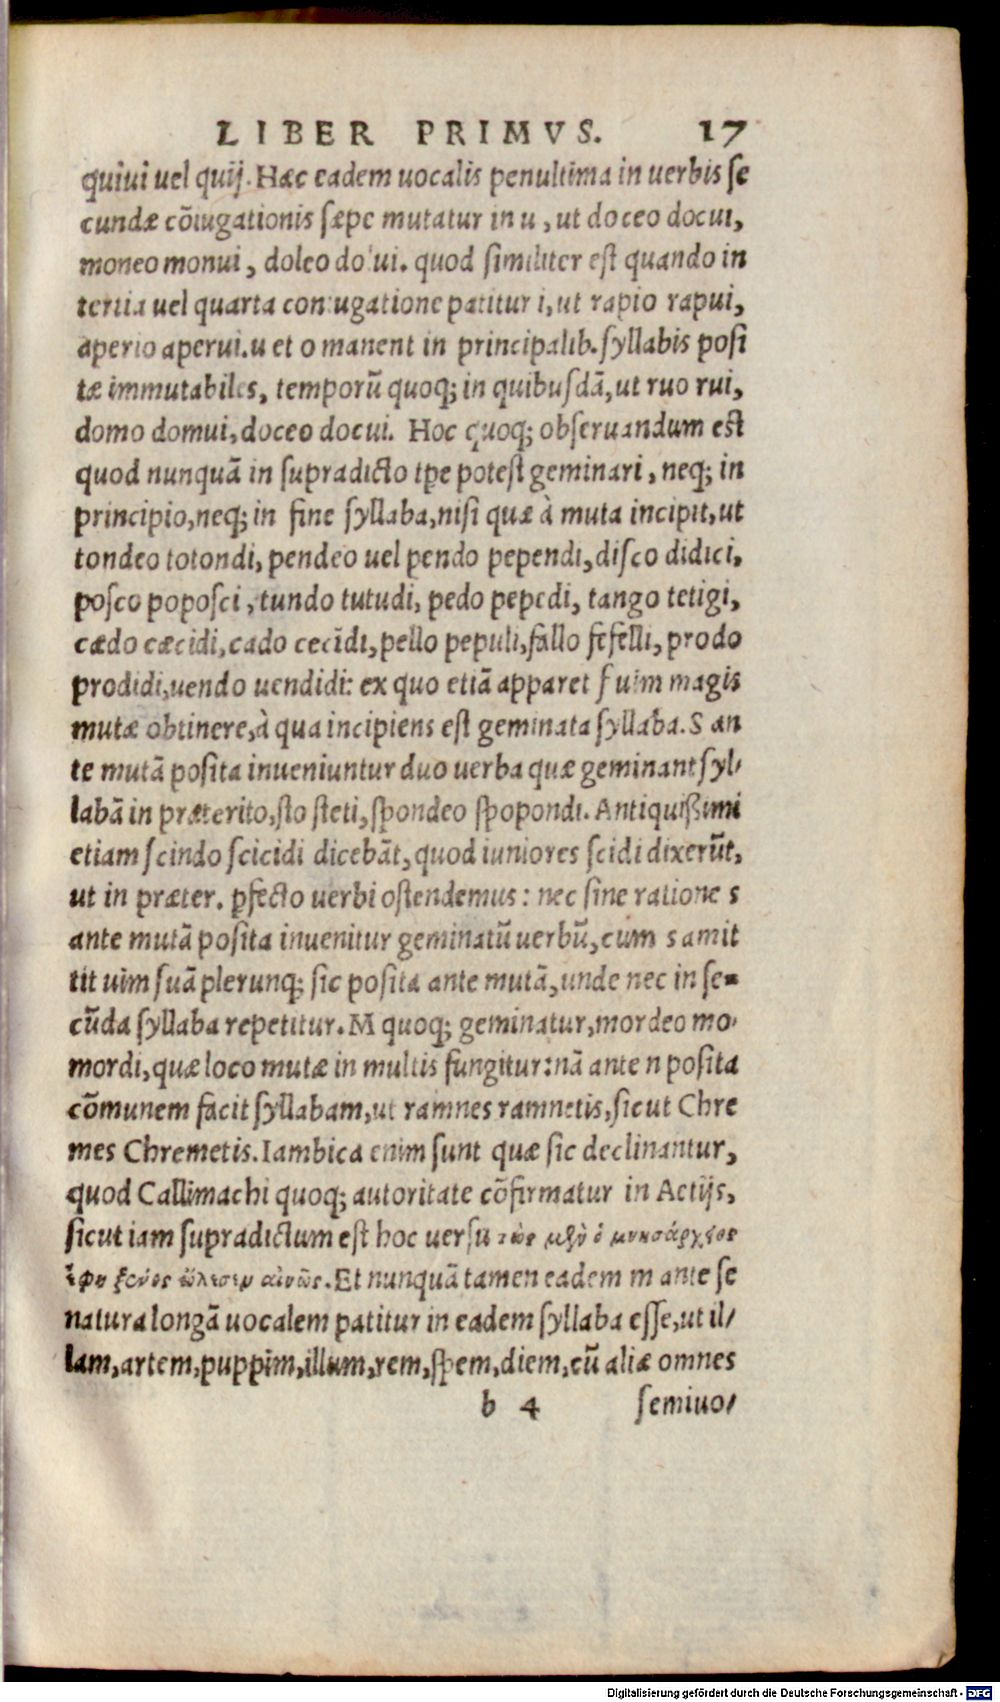 LIBER PRIMVS. 17
quiui uel quij. Hæc eadem uocalis penultima in uerbis se
cundæ cõiugationis sæpe mutatur in u, ut doceo docui,
moneo monui, doleo dolui. quod similiter est quando in
tertia uel quarta coniugatione patitur i, ut rapio rapui,
aperio aperui. u et o manent in principalib. syllabis posi
tæ immutabiles, temporũ quoq; in quibusdã, ut ruo rui,
domo domui, doceo docui. Hoc quoq; obseruandum est
quod nunquã in supradicto tpe potest geminari, neq; in
principio, neq; in fine syllaba, nisi quæ à muta incipit, ut
tondeo totondi, pendeo uel pendo pependi, disco didici,
posco poposci, tundo tutudi, pedo pepedi, tango tetigi,
cædo cæcidi, cado cecĩdi, pello pepuli, fallo fefelli, prodo
prodidi, uendo uendidi: ex quo etiã apparet suim magis
mutæ obtinere, à qua incipiens est geminata syllaba. S an
te mutã posita inueniuntur duo uerba quæ geminant syl/
labã in præterito, sto steti, spondeo spopondi. Antiquißimi
etiam scindo scicidi dicebãt, quod iuniores scidi dixerũt,
ut in præter. pfecto uerbi ostendemus: nec sine ratione s
ante mutã posita inuenitur geminatũ uerbũ, cum s amit
tit uim suã plerunq; sic posita ante mutã, unde nec in se-
cũda syllaba repetitur. M quoq; geminatur, mordeo mo-
mordi, quæ loco mutæ in multis fungitur: nã ante n posita
cõmunem facit syllabam, ut ramnes ramnetis, sicut Chre
mes Chremetis. Iambica enim sunt quæ sic declinantur,
quod Callimachi quoq; autoritate cõfirmatur in Actijs,
sicut iam supradictum est hoc uersu τὼς μὲν ὁ μνησάρχειος
ἔφη ξεῖνος ὥλεσεν αἰνῶς. Et nunquã tamen eadem m ante se
natura longã uocalem patitur in eadem syllaba esse, ut il/
lam, artem, puppim, illum, rem, spem, diem, cũ aliæ omnes
b 4 semiuo/
Digitalisierung gefördert durch die Deutsche Forschungsgemeinschaft - DFG